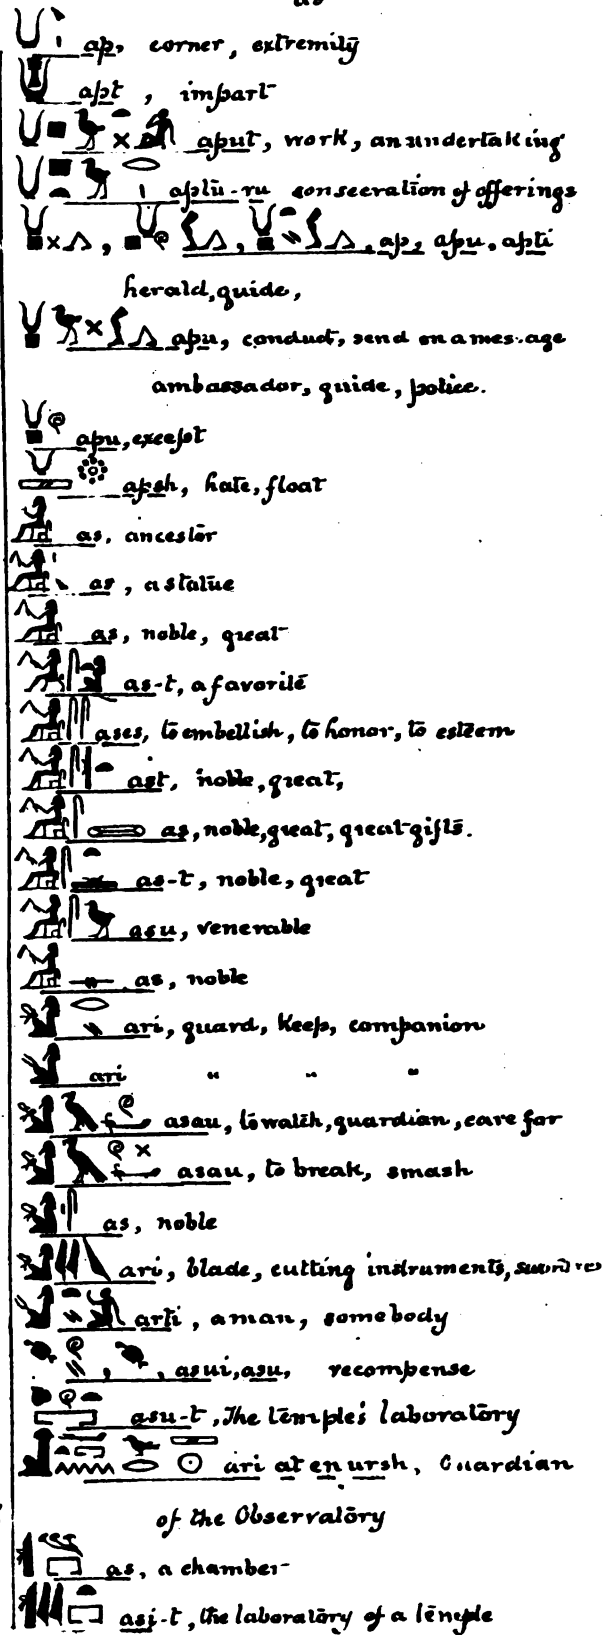 as
ap, corner, extremity
apt, impart
aput, work, an undertaking
aptu-ru consecration of offerings
ap, apu, apti
herald, guide,
apu, conduct, send on a message
ambassador, guide, police.
apu, except
apsh, hate, float
as, ancestor
as, a statue
as, noble, great
as-t, a favorite
ases, to embellish, to honor, to esteem
ast, noble, great,
as, noble, great, great gifts.
as-t, noble, great
asu, venerable
as, noble
ari, guard, keep, companion
ari " " "
asau, to watch, guardian, care for
asau, to break, smash
as, noble
ari, blade, cutting instruments,
arti, a man, somebody
, asui, asu, recompense
asu-t, The temple's laboratory
ari at en ursh, Guardian
of the Observatory
as, a chamber
asi-t, the laboratory of a temple